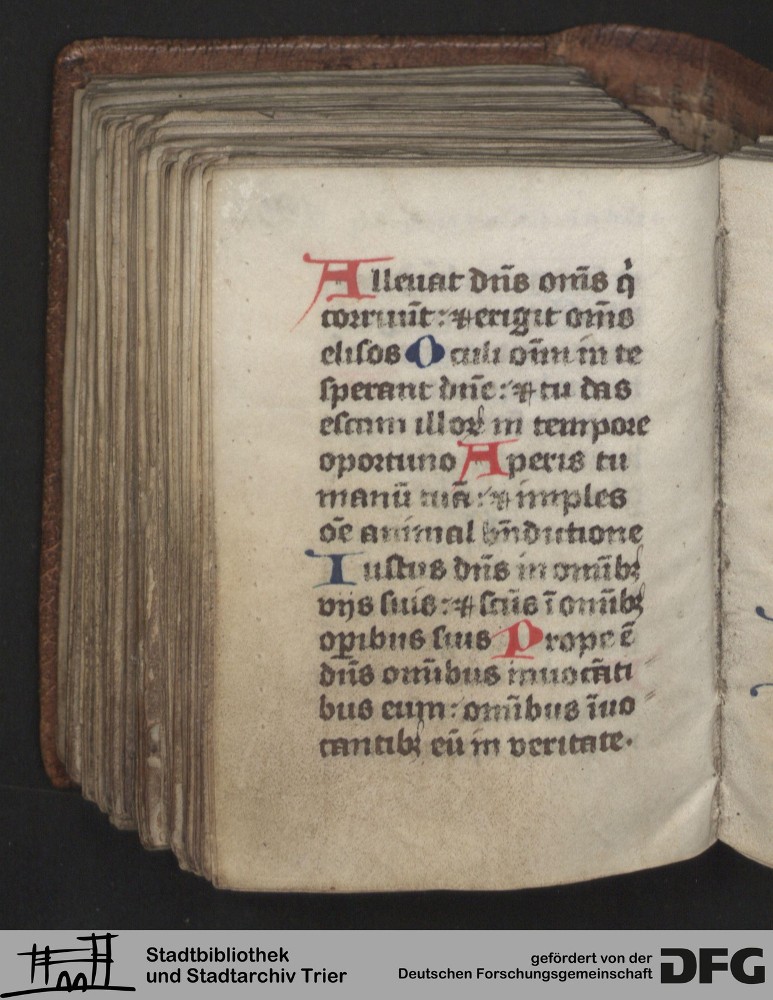 Alleuat dn̄s om̄s q̇
corruūt: ⁊ erigit om̄s
elisos Oculi oīm in te
sperant dn̄e: ⁊ tu das
escam illoꝝ in tempore
oportuno Aperis tu
manū tuā: ⁊ imples
oē animal bn̄dictione
Iustus dn̄s in omībꝫ
vijs suis: ⁊ scūs ī omībꝫ
oꝑibus suis Prope ē
dn̄s omībus inuocāti
bus eum: omībus īuo
cantibꝫ eū in veritate.
Stadtbibliothek
und Stadtarchiv Trier
gefördert von der
Deutschen Forschungsgemeinschaft
DFG